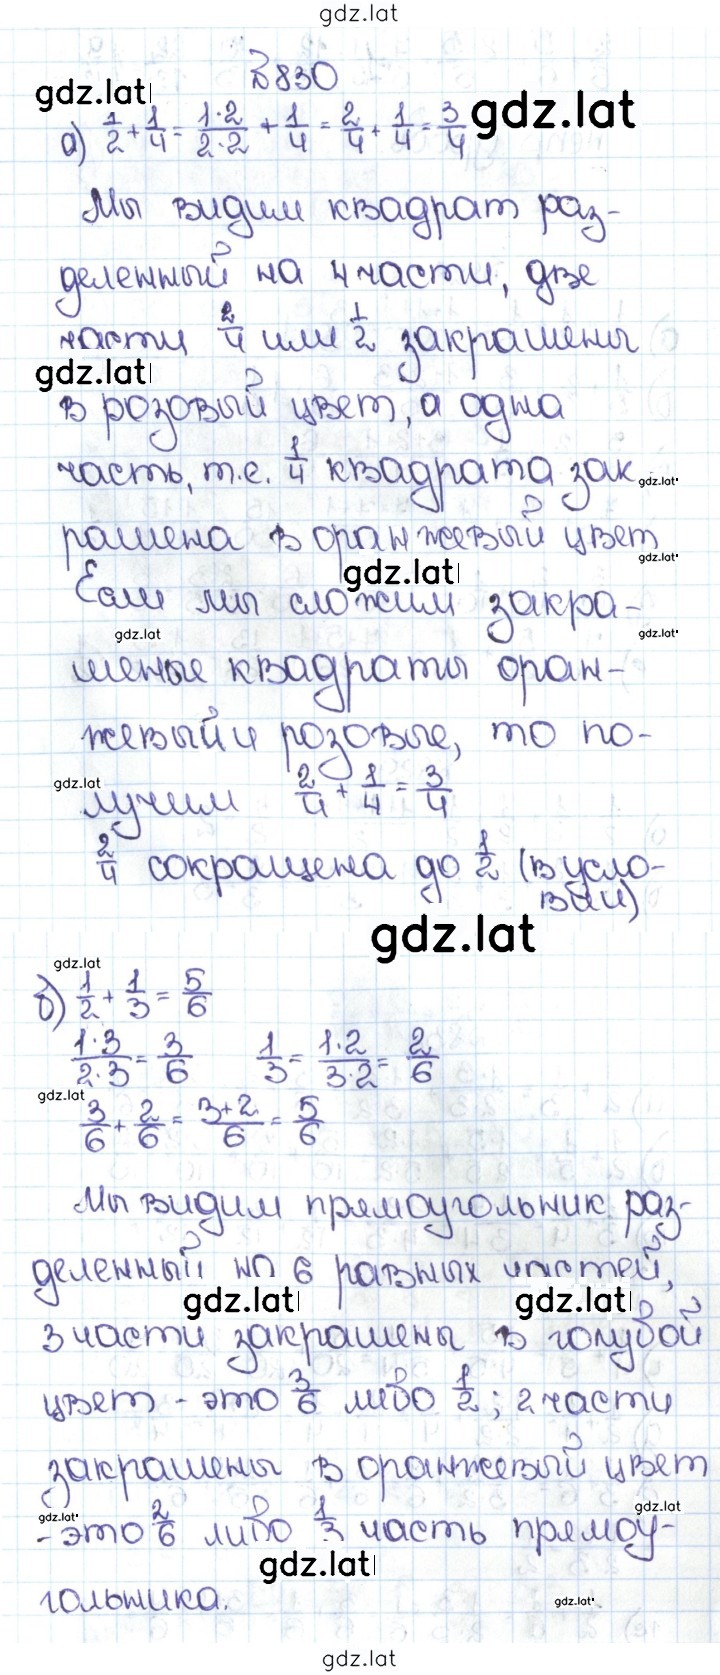 gdz.lat
№830
gdz.lat
а) 1/2 + 1/4 = 1·2/2·2 + 1/4 = 2/4 + 1/4 = 3/4 gdz.lat
Мы видим квадрат раз-
деленный на 4 части, две
части 2/4 или 1/2 закрашены
gdz.lat
в розовый цвет, а одна
часть, т.е. 1/4 квадрата зак gdz.lat
рашена в оранжевый цвет
gdz.lat
gdz.lat
Если мы сложим закра-
gdz.lat
gdz.lat
шеные квадраты оран-
жевый и розовые, то по-
gdz.lat
лучим 2/4 + 1/4 = 3/4
2/4 сокращена до 1/2 (в усло-
вии)
gdz.lat
gdz.lat
б) 1/2 + 1/3 = 5/6
1·3/2·3 = 3/6 1/3 = 1·2/3·2 = 2/6
gdz.lat
3/6 + 2/6 = 3+2/6 = 5/6
Мы видим прямоугольник раз-
деленный на 6 равных частей,
gdz.lat gdz.lat
3 части закрашены в голубой
цвет - это 3/6 либо 1/2; 2 части
закрашены в оранжевый цвет
gdz.lat gdz.lat
- это 2/6 либо 1/3 часть прямоу-
gdz.lat
гольника.
gdz.lat
gdz.lat